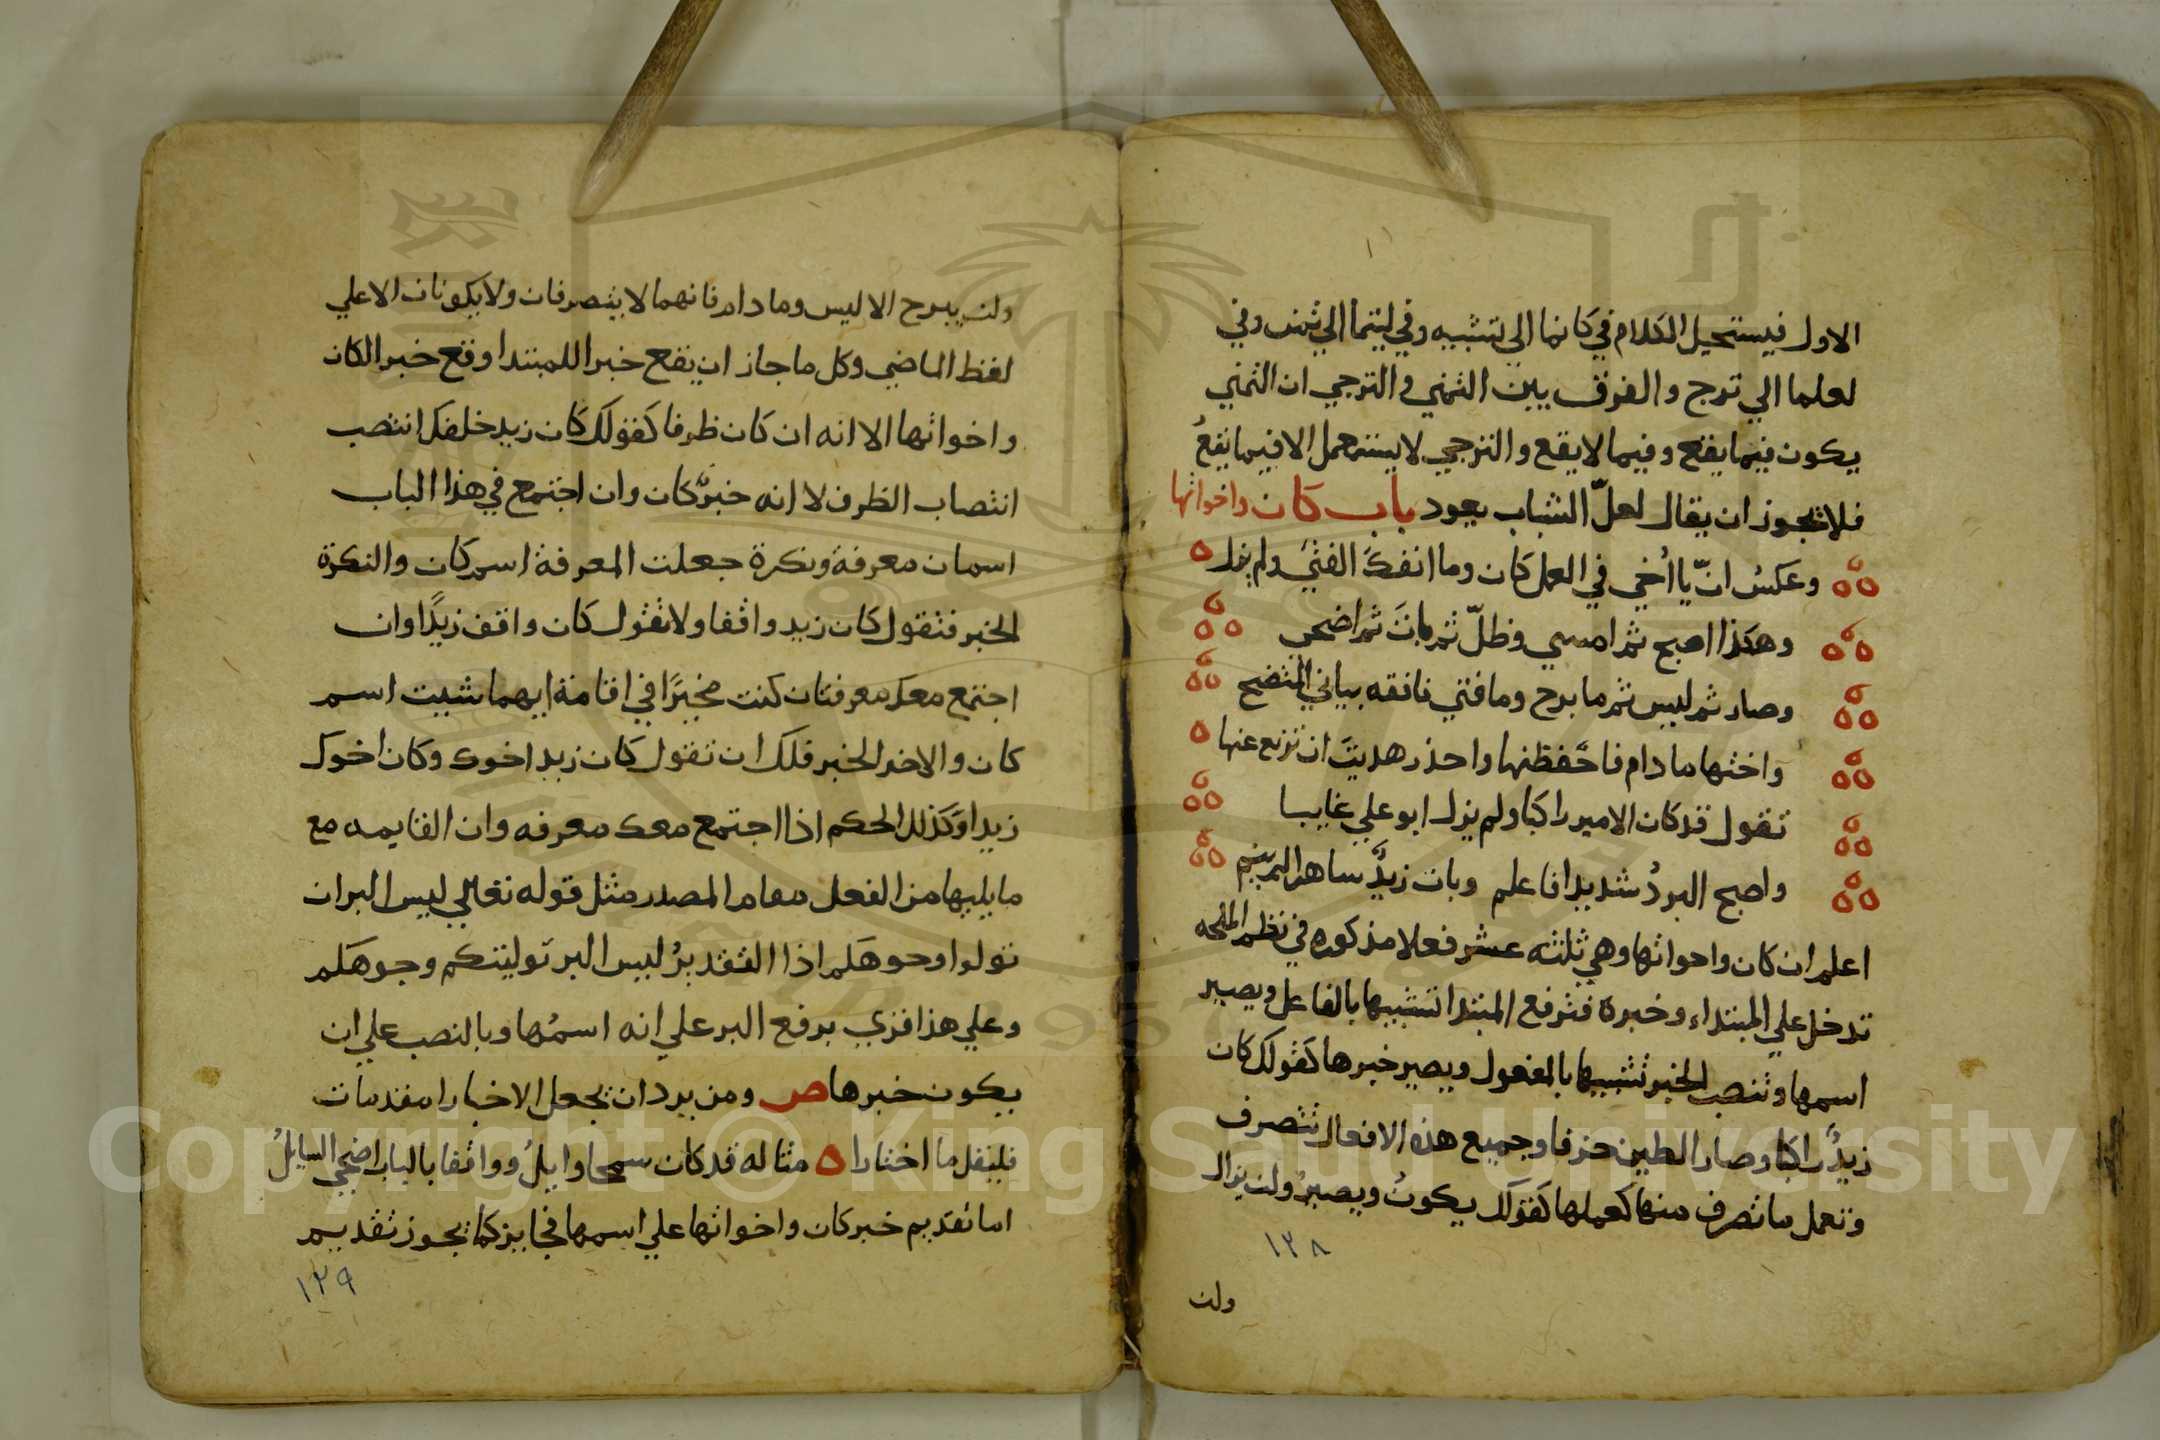 الاول فيستحيل الكلام في كانما الى تشبيه وفي ليتما الي تمن وفي
لعلما الي ترج والفرق بين التمني والترجي ان التمني
يكون فيما يقع وفيما لا يقع والترجي لا يستعمل الا فيما يقعُ
فلا يجوز ان يقال لعلّ الشباب يعود باب كان واخواتها
وعكسُ انّ يا اُخي في العمل كان وما انفكّ الفتي ولم يزل
وهكذا اصبح ثم امسي وظلّ ثم باتَ ثم اضحي
وصار ثم ليس ثم ما برح وما فتي فافقه بياني المتضح
واختها ما دام فاحفظنها واحذر هديتَ ان تزيع عنها
تقول قد كان الامير راكبا ولم يزل ابو علي غايبا
واصبح البردُ شديدا فاعلم وبات زيدٌ ساهرا لم ينم
اعلم ان كان واخواتها وهي ثلثه عشر فعلا مذكوره في نظم الملحه
تدخل علي المبتداء وخبره فترفع المبتدا تشبيها بالفاعل ويصير
اسمها وتنصب الخبر تشبيها بالمفعول ويصير خبرها كقولك كان
زيدٌ راكبا وصار الطين خزفا وجميع هذه الافعال تتصرف
وتعمل ما تصرف منها كعملها كقولك يكونُ ويصيرُ ولن يزال
١٢٨
ولن
ولن يبرح الا ليس وما دام فانهما لا يتصرفان ولا يكونان الا علي
لفظ الماضي وكل ما جاز ان يقع خبرا للمبتدا وقع خبرا لكان
واخواتها الا انه ان كان ظرفا كقولك كان زيد خلفك انتصب
انتصاب الظرف لا انه خبر كان وان اجتمع في هذا الباب
اسمان معرفة ونكرة جعلت المعرفة اسم كان والنكرة
الخبر فتقول كان زيد واقفا ولا تقول كان واقف زيدًا وان
اجتمع معك معرفتان كنت مخيرًا في اقامة ايهما شيت اسم
كان والاخر الخبر فلك ان تقول كان زيد اخوك وكان اخوك
زيدا وكذلك الحكم اذا اجتمع معك معرفه وان القايمه مع
ما يليها من الفعل مقام المصدر مثل قوله تعالي ليس البر ان
تولوا وجوهكم اذا التقديرُ ليس البر توليتكم وجوهكم
وعلي هذا قري برفع البر علي انه اسمُها وبالنصب علي ان
يكون خبرها ص ومن يرد ان يجعل الاخبارا مقدمات
فليقل ما اختارا مثاله قد كان سمحا وايلُ وواقفا بالباب اضحي السايلُ
اما تقديم خبر كان واخواتها علي اسمها فجايز كما يجوز تقديم
١٢٩
Copyright © King Saud University